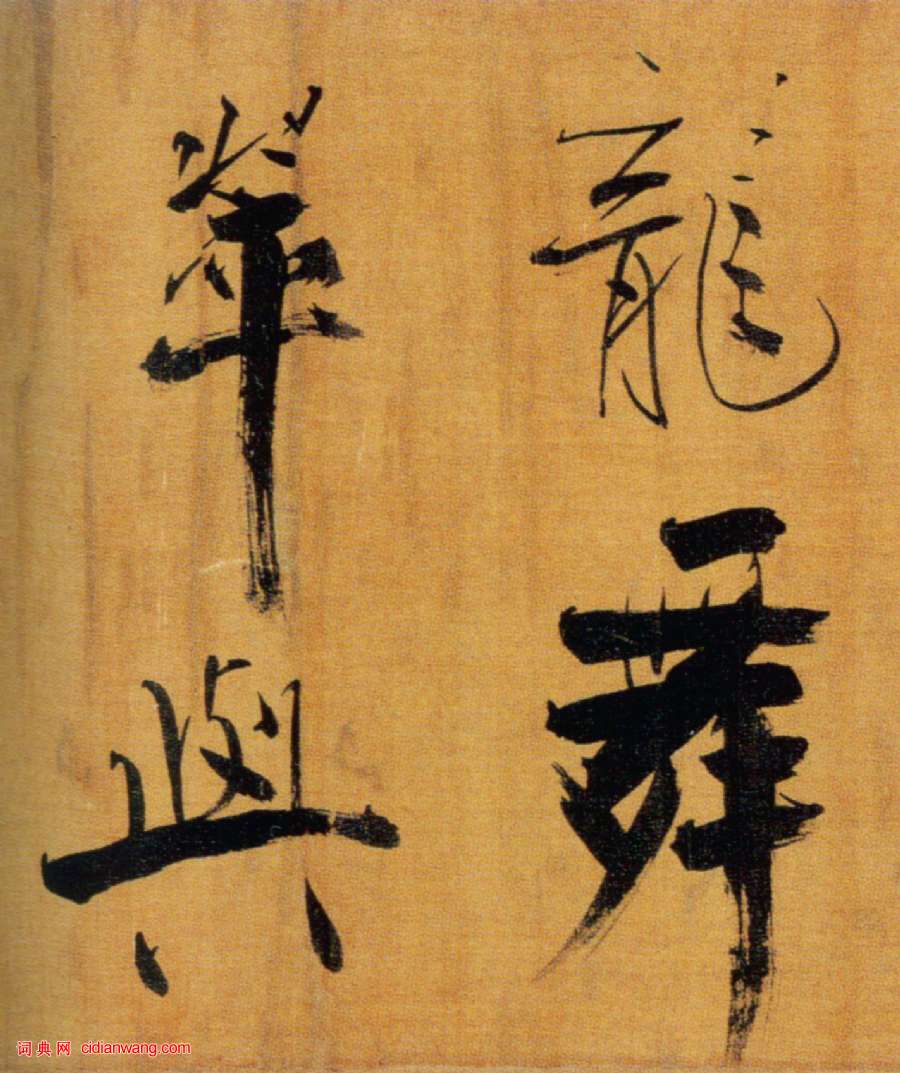 龍舞
翠與
词典网 cidianwang.com